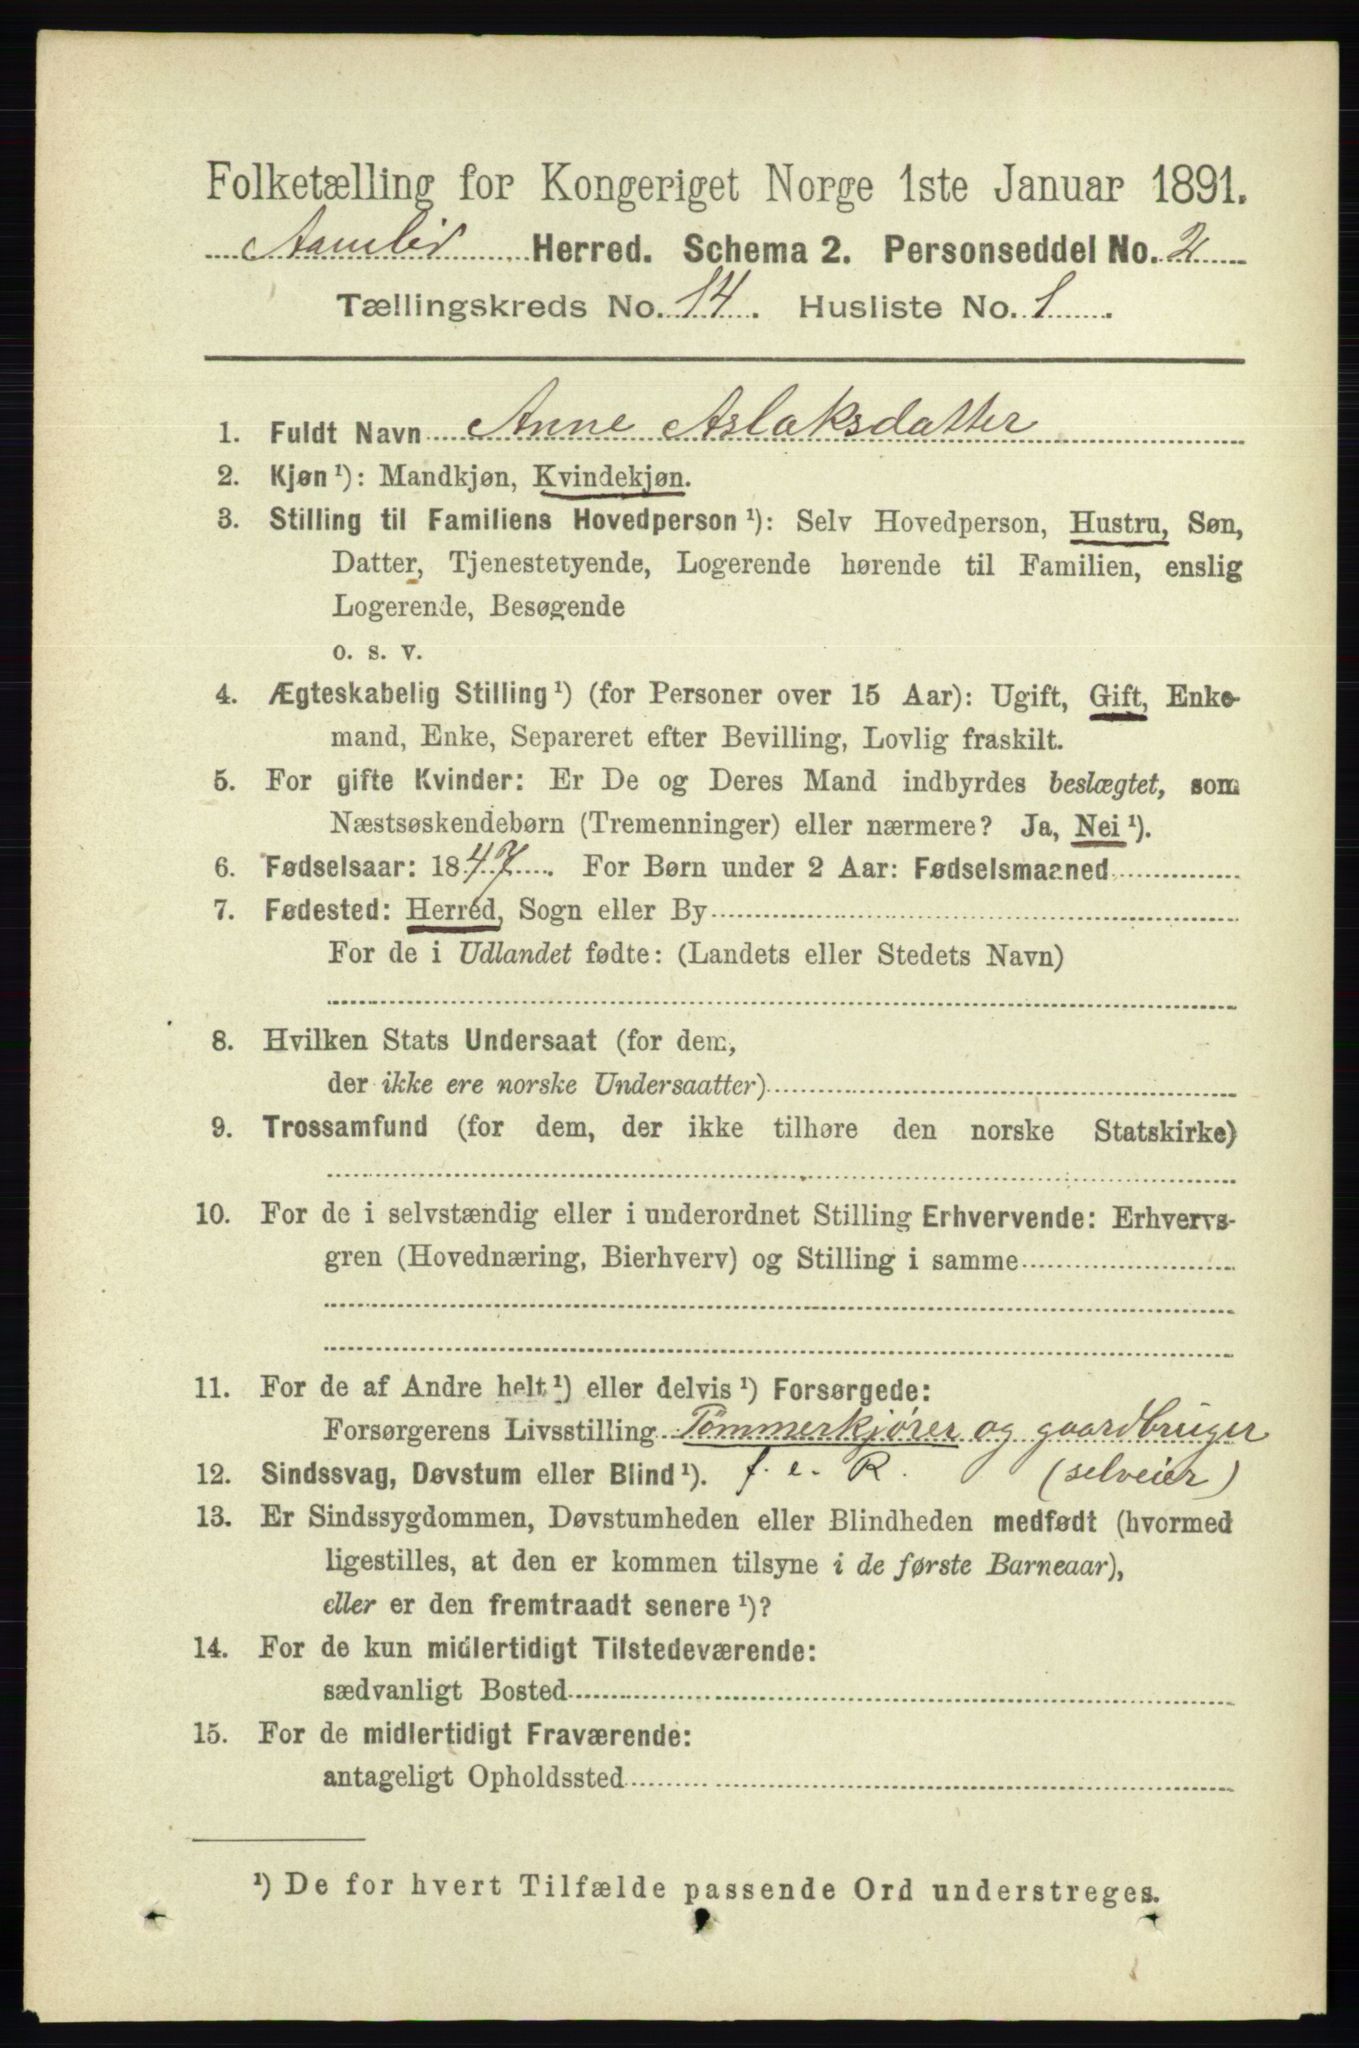 Folketælling for Kongeriget Norge 1ste Januar 1891.
Aamlid Herred. Schema 2. Personseddel No. 2
Tællingskreds No. 14. Husliste No. 1.
1. Fuldt Navn Anne Aslaksdatter
2. Kjøn ¹): Mandkjøn, Kvindekjøn.
3. Stilling til Familiens Hovedperson ¹): Selv Hovedperson, Hustru, Søn,
Datter, Tjenestetyende, Logerende hørende til Familien, enslig
Logerende, Besøgende
o. s. v.
4. Ægteskabelig Stilling ¹) (for Personer over 15 Aar): Ugift, Gift, Enke-
mand, Enke, Separeret efter Bevilling, Lovlig fraskilt.
5. For gifte Kvinder: Er De og Deres Mand indbyrdes beslægtet, som
Næstsøskendebørn (Tremenninger) eller nærmere? Ja, Nei ¹).
6. Fødselsaar: 1847. For Børn under 2 Aar: Fødselsmaaned
7. Fødested: Herred, Sogn eller By
For de i Udlandet fødte: (Landets eller Stedets Navn)
8. Hvilken Stats Undersaat (for dem,
der ikke ere norske Undersaatter)
9. Trossamfund (for dem, der ikke tilhøre den norske Statskirke)
10. For de i selvstændig eller i underordnet Stilling Erhvervende: Erhvervs-
gren (Hovednæring, Bierhverv) og Stilling i samme
11. For de af Andre helt ¹) eller delvis ¹) Forsørgede:
Forsørgerens Livsstilling Tømmerkjører og gaardbruger
12. Sindssvag, Døvstum eller Blind ¹). f. e. R. (selveier)
13. Er Sindssygdommen, Døvstumheden eller Blindheden medfødt (hvormed
ligestilles, at den er kommen tilsyne i de første Barneaar),
eller er den fremtraadt senere ¹)?
14. For de kun midlertidigt Tilstedeværende:
sædvanligt Bosted
15. For de midlertidigt Fraværende:
antageligt Opholdssted
¹) De for hvert Tilfælde passende Ord understreges.